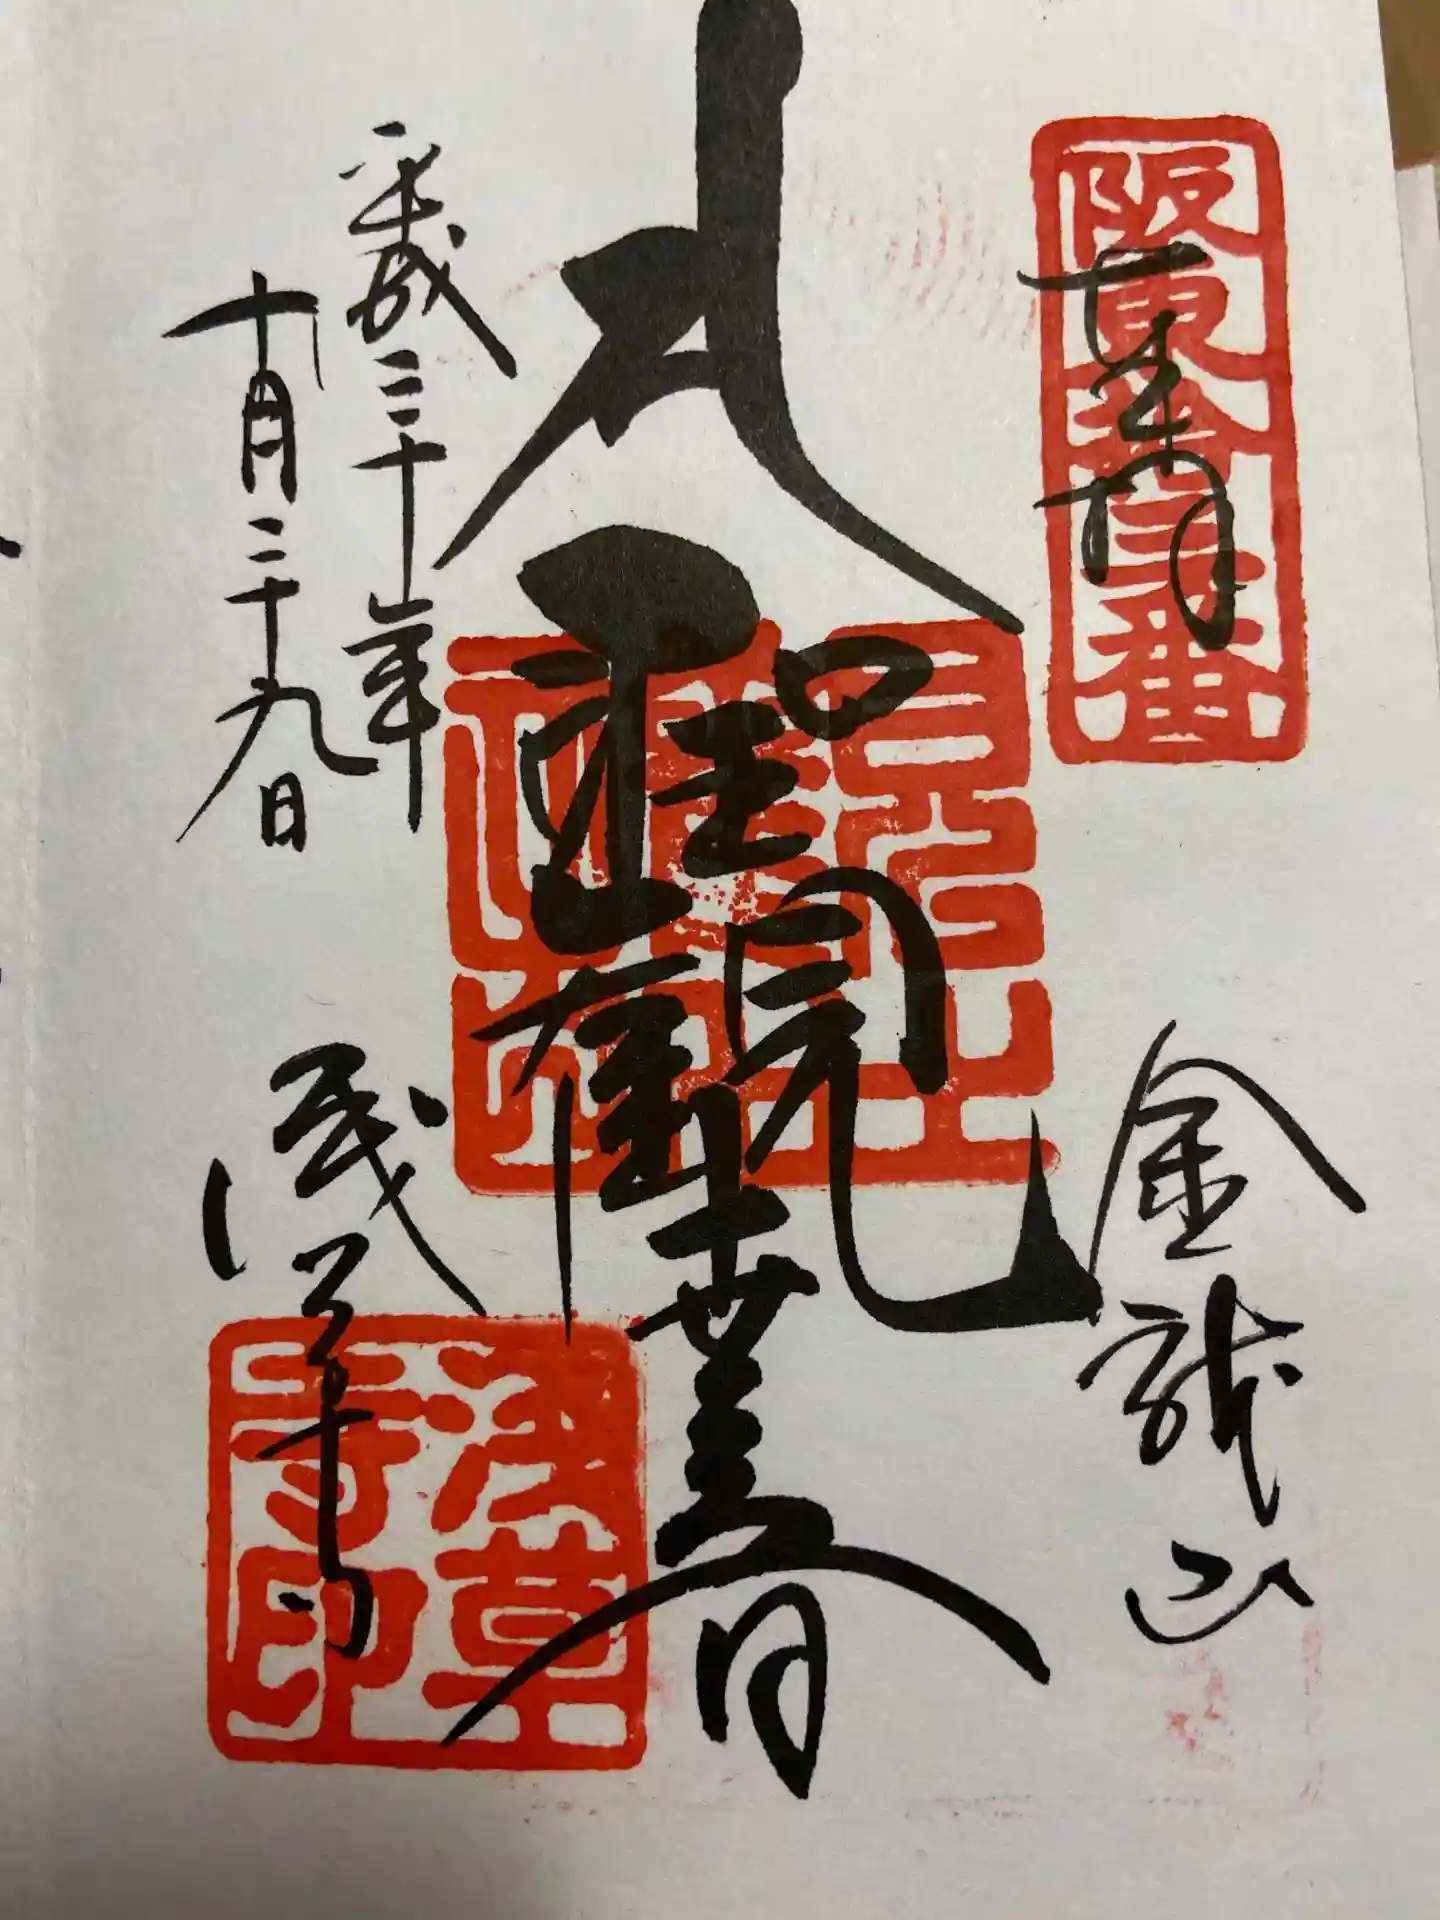 阪東拾三番
奉拝
金龍山
聖観世音
平成三十年
十月二十九日
浅草寺
浅草寺印